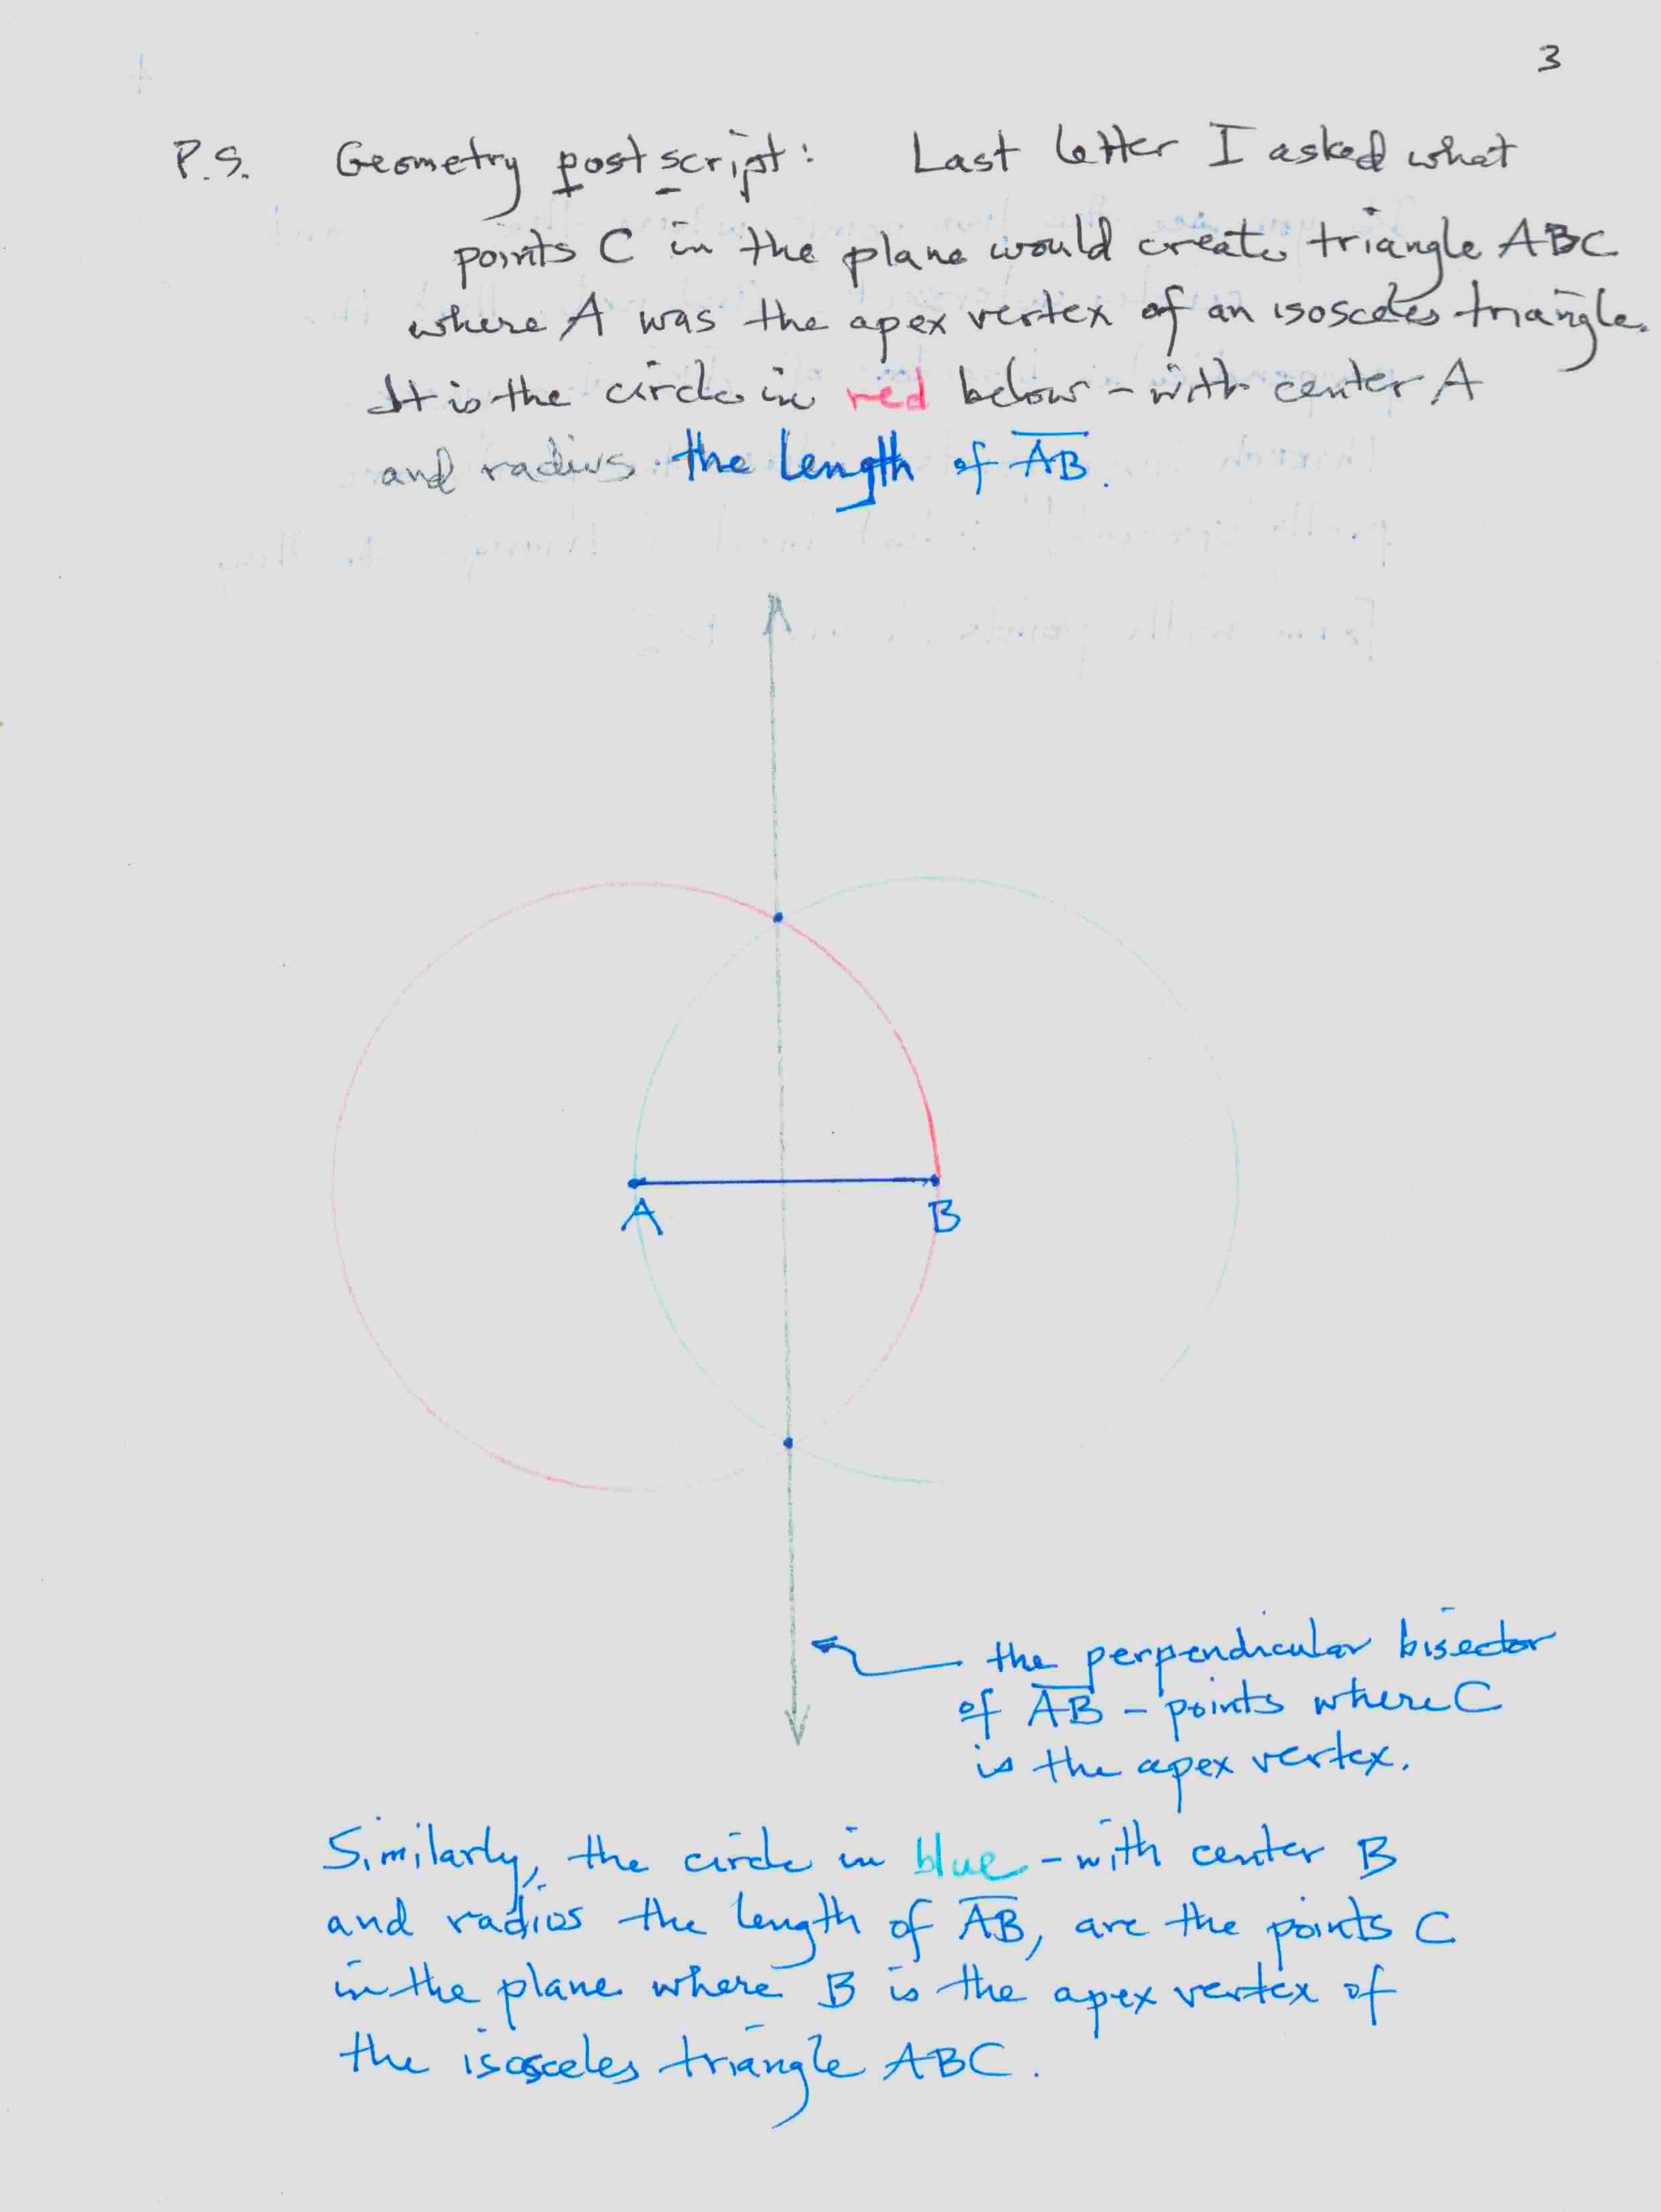 3
P.S. Geometry postscript: Last letter I asked what
points C in the plane would create triangle ABC
where A was the apex vertex of an isosceles triangle.
It is the circle in red below - with center A
and radius the length of A̅B̅.
A
B
the perpendicular bisector
of A̅B̅ - points where C
is the apex vertex.
Similarly, the circle in blue - with center B
and radius the length of A̅B̅, are the points C
in the plane where B is the apex vertex of
the isosceles triangle ABC.